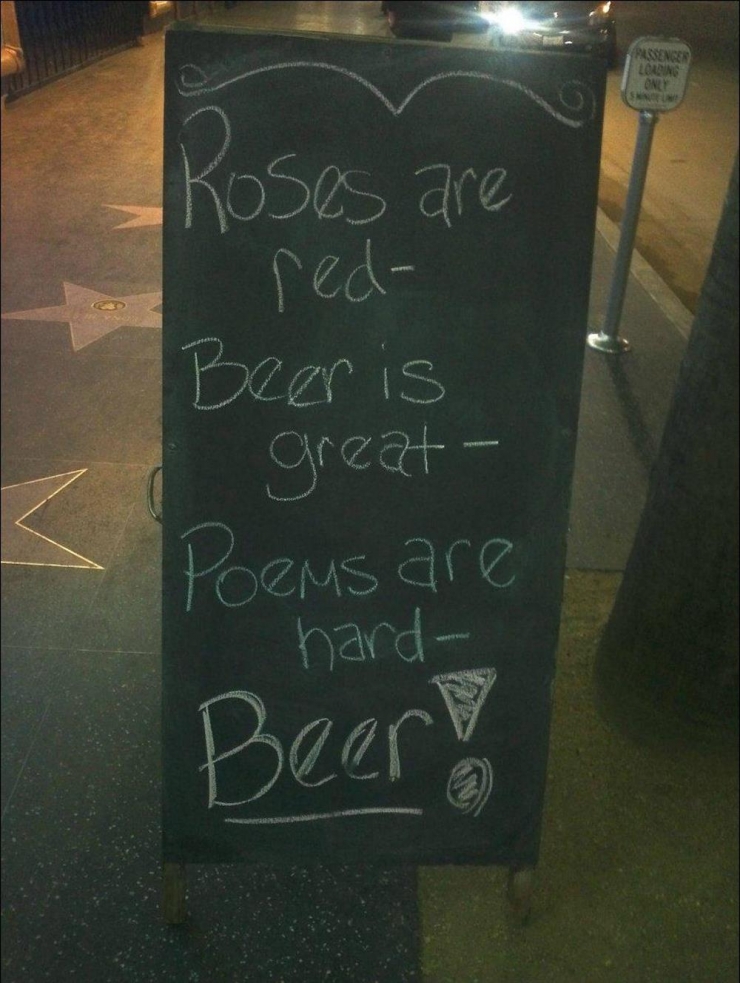 PASSENGER
LOADING
ONLY
5 MINUTE LIMIT
Roses are
red-
Beer is
great-
Poems are
hard-
Beer!